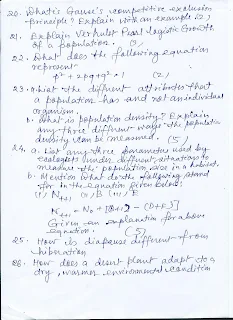 20. What is Gause's competitive exclusion
principle? Explain with an example (2)
21. Explain Verhulst Pearl Logistic Growth
of a population.
22. What does the following equation
represent
p² + 2pq + q² = 1 (2)
23. a. List the different attributes that
a population has and not an individual
organism.
b. What is population density? Explain
any three different ways the population
density can be measured. (5)
24. a. List any three parameters used by
ecologists under different situations to
measure the population size in a habitat.
b. Mention what do the following stand
for in the equation given below:
(i) Nt+1 (ii) B (iii) E
Nt+1 = Nt + [(B+I) – (D+E)]
Give an explanation for above
equation. (5)
25. How is diapause different from
hibernation
26. How does a desert plant adapt to a
dry, warmer environmental condition